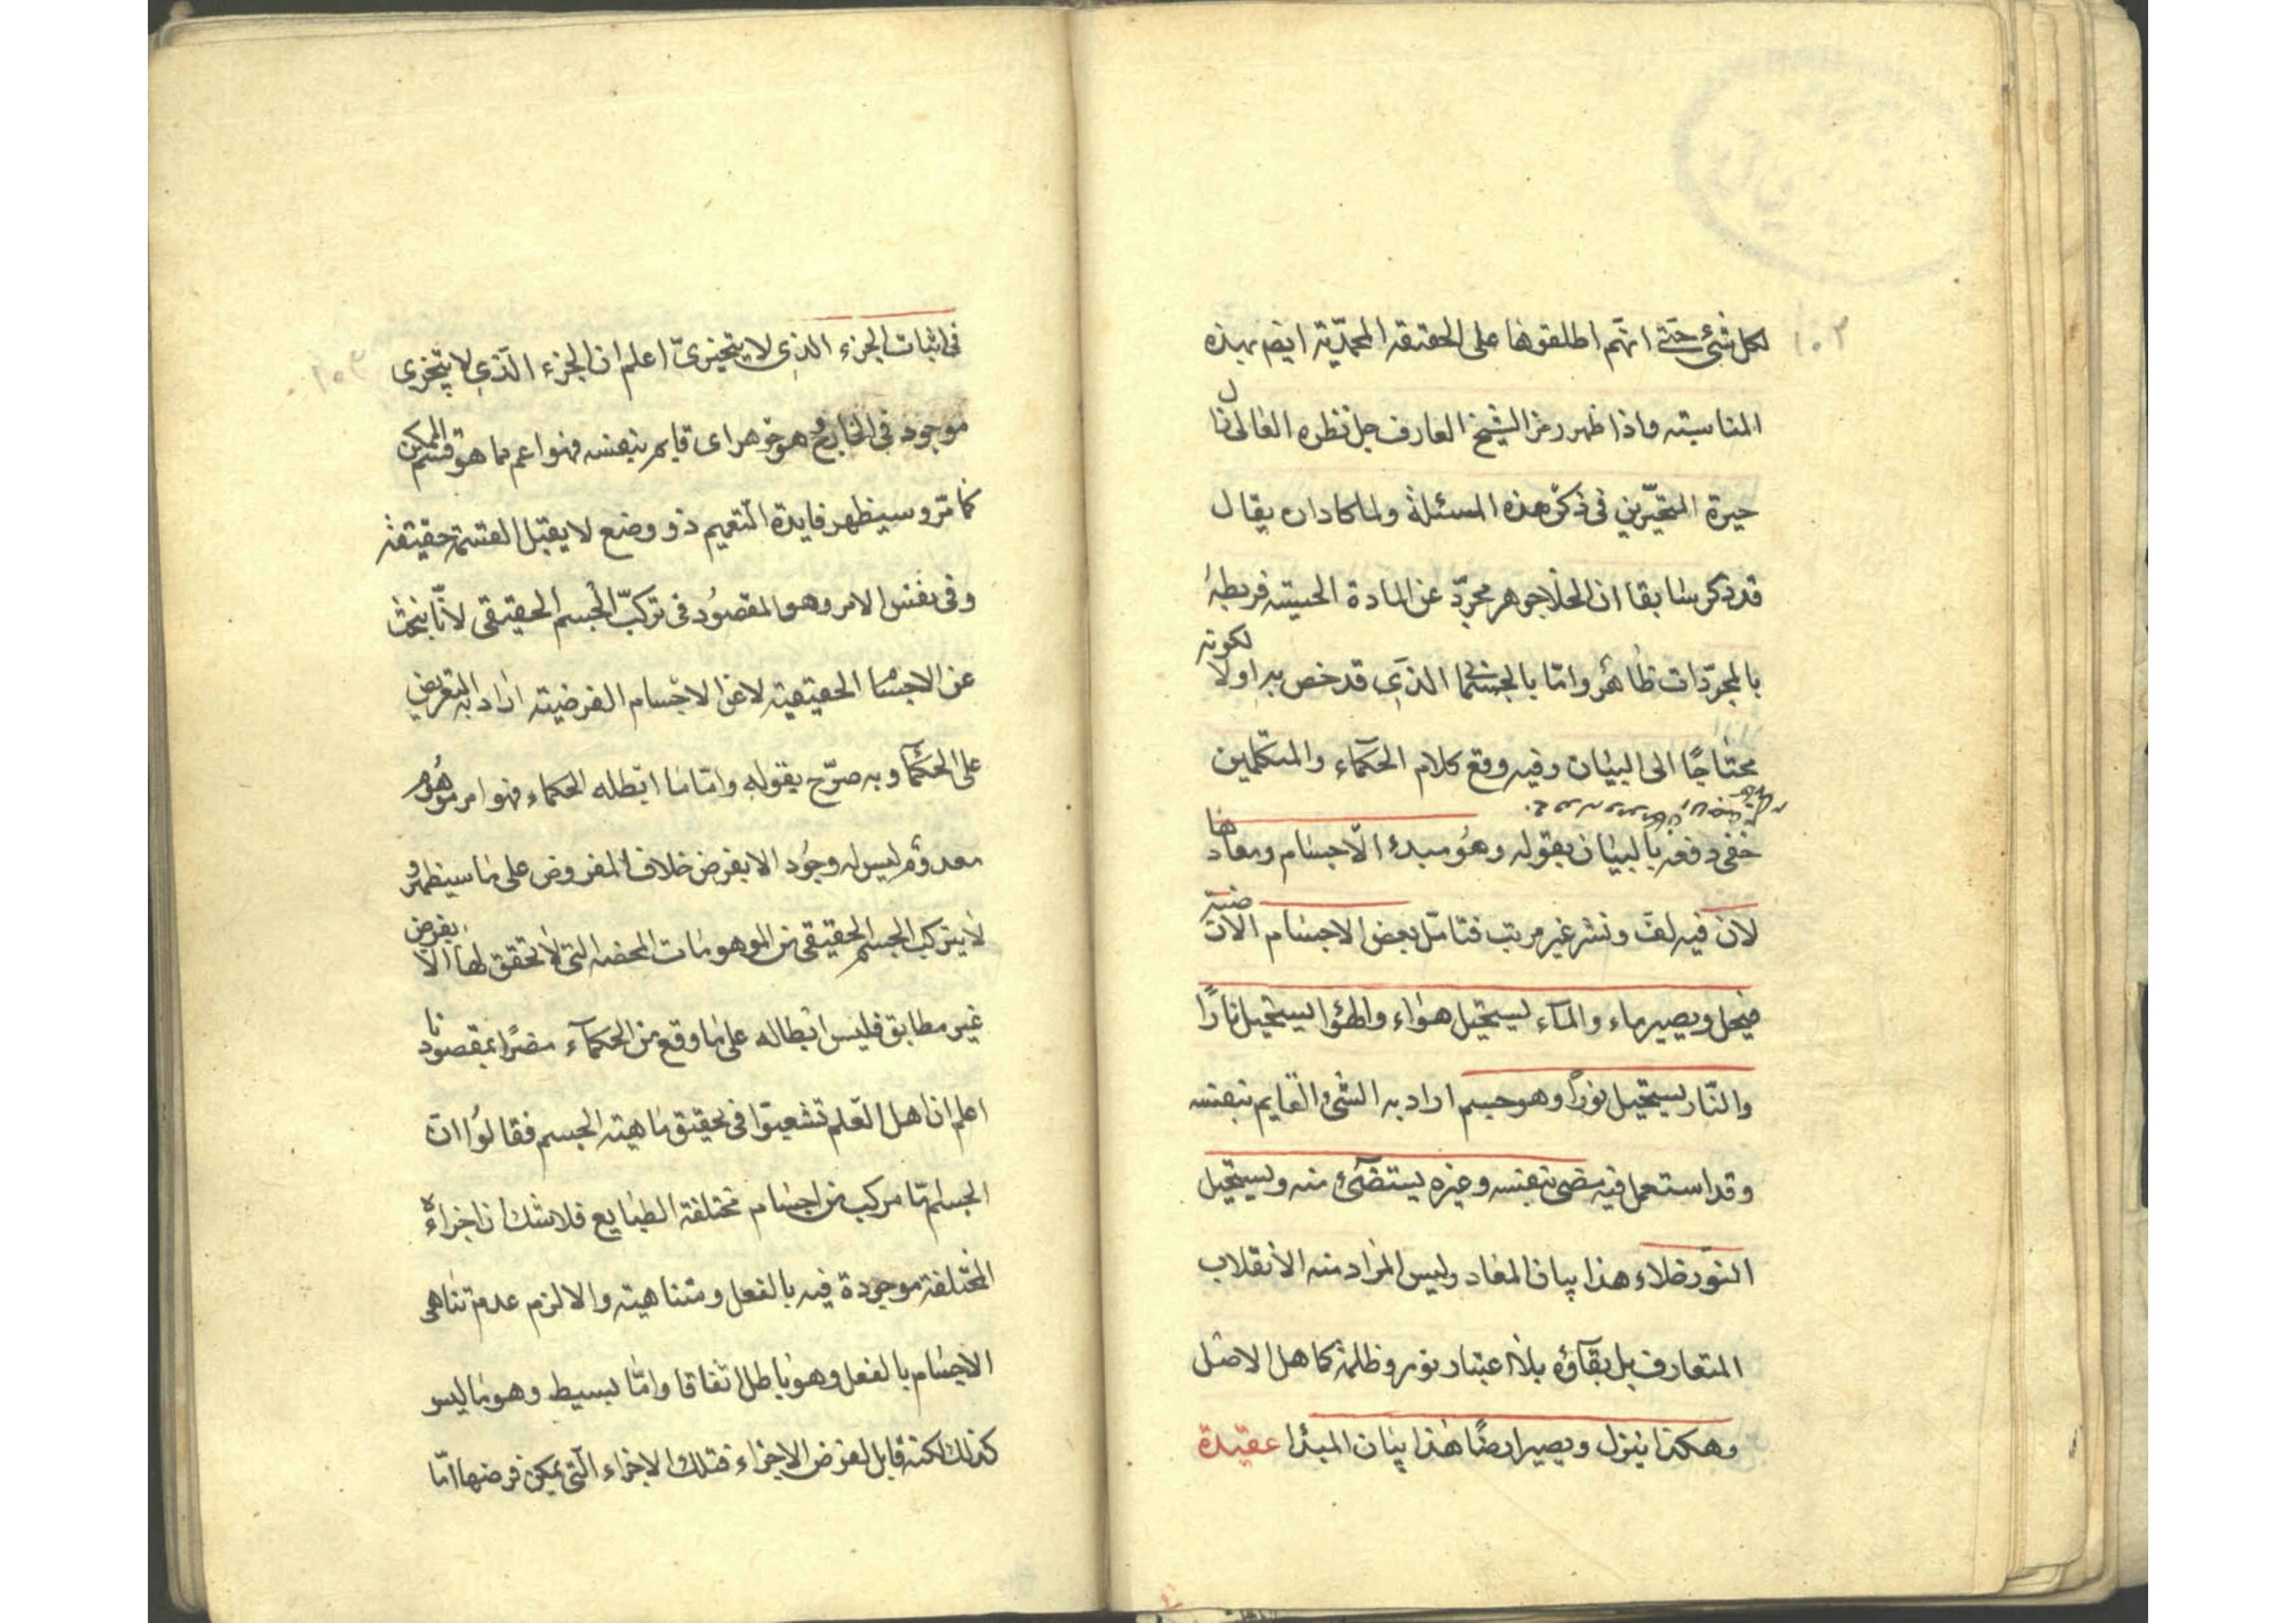 ١٠٢
لكل شئ حتى انهم اطلقوها على الحقيقة المحمدية ايضم بهذه
المناسبة واذا ظهر رمز الشيخ العارف جل نظره العالى
حيرة المتحيرين فى ذكر هذه المسئلة ولما كاد ان يقال
قد ذكر سابقا ان الخلا جوهر مجرد عن المادة الحسية فربطه
بالمجردات ظاهر واما بالجسم الذى قد خص به اولا لكونه
محتاجا الى البيان وفيه وقع كلام الحكماء والمتكلمين
خفى دفعه بالبيان بقوله وهو مبدء الاجسام ومعادها
لان فيه لف ونشر غير مرتب فتامل بعض الاجسام الارضية
ينحل ويصير ماء والماء يستحيل هواء والهوا يستحيل نارا
والنار يستحيل نورا وهو جسم اراد به الشئ القايم بنفسه
وقد استعمل فيه مضئ بنفسه وغيره يستضئ منه ويستحيل
النور خلاء هذا بيان المعاد وليس المراد منه الانقلاب
المتعارف بل بقاؤه بلا اعتبار نور وظلمة كما هو الاصل
وهكذا ينزل ويصير ارضا هذا بيان المبدا عقيدة
فى اثبات الجزء الذى لا يتجزى اعلم ان الجزء الذى لا يتجزى
موجود فى الخارج وهو جوهر اى قايم بنفسه فهو اعم مما هو قسم الممكن
كما مر وسيظهر فايدة التعميم ذو وضع لا يقبل القسمة حقيقة
وفى نفس الامر وهو المقصود فى تركب الجسم الحقيقى لانا نبحث
عن الاجسام الحقيقية لا عن الاجسام الفرضية اراد به التعريض
على الحكماء وبه صرح بقوله واما ما ابطله الحكماء فهو امر موهوم
معدوم ليس له وجود الا بفرض خلاف المفروض على ما سيظهر و
لا يتركب الجسم الحقيقى من الموهومات المحضة التى لا تحقق لها الا بفرض
غير مطابق فليس ابطاله على ما وقع من الحكماء مضرا بمقصودنا
اعلم ان اهل العلم تشعبوا فى تحقيق ماهية الجسم فقالوا ان
الجسم اما مركب من اجسام مختلفة الطبايع فلا شك ان اجزاءه
المختلفة موجودة فيه بالفعل ومتناهية والا لزم عدم تناهى
الاجسام بالفعل وهو باطل اتفاقا واما بسيط وهو ما ليس
كذلك لكنه قابل لفرض الاجزاء فتلك الاجزاء التى يمكن فرضها اما